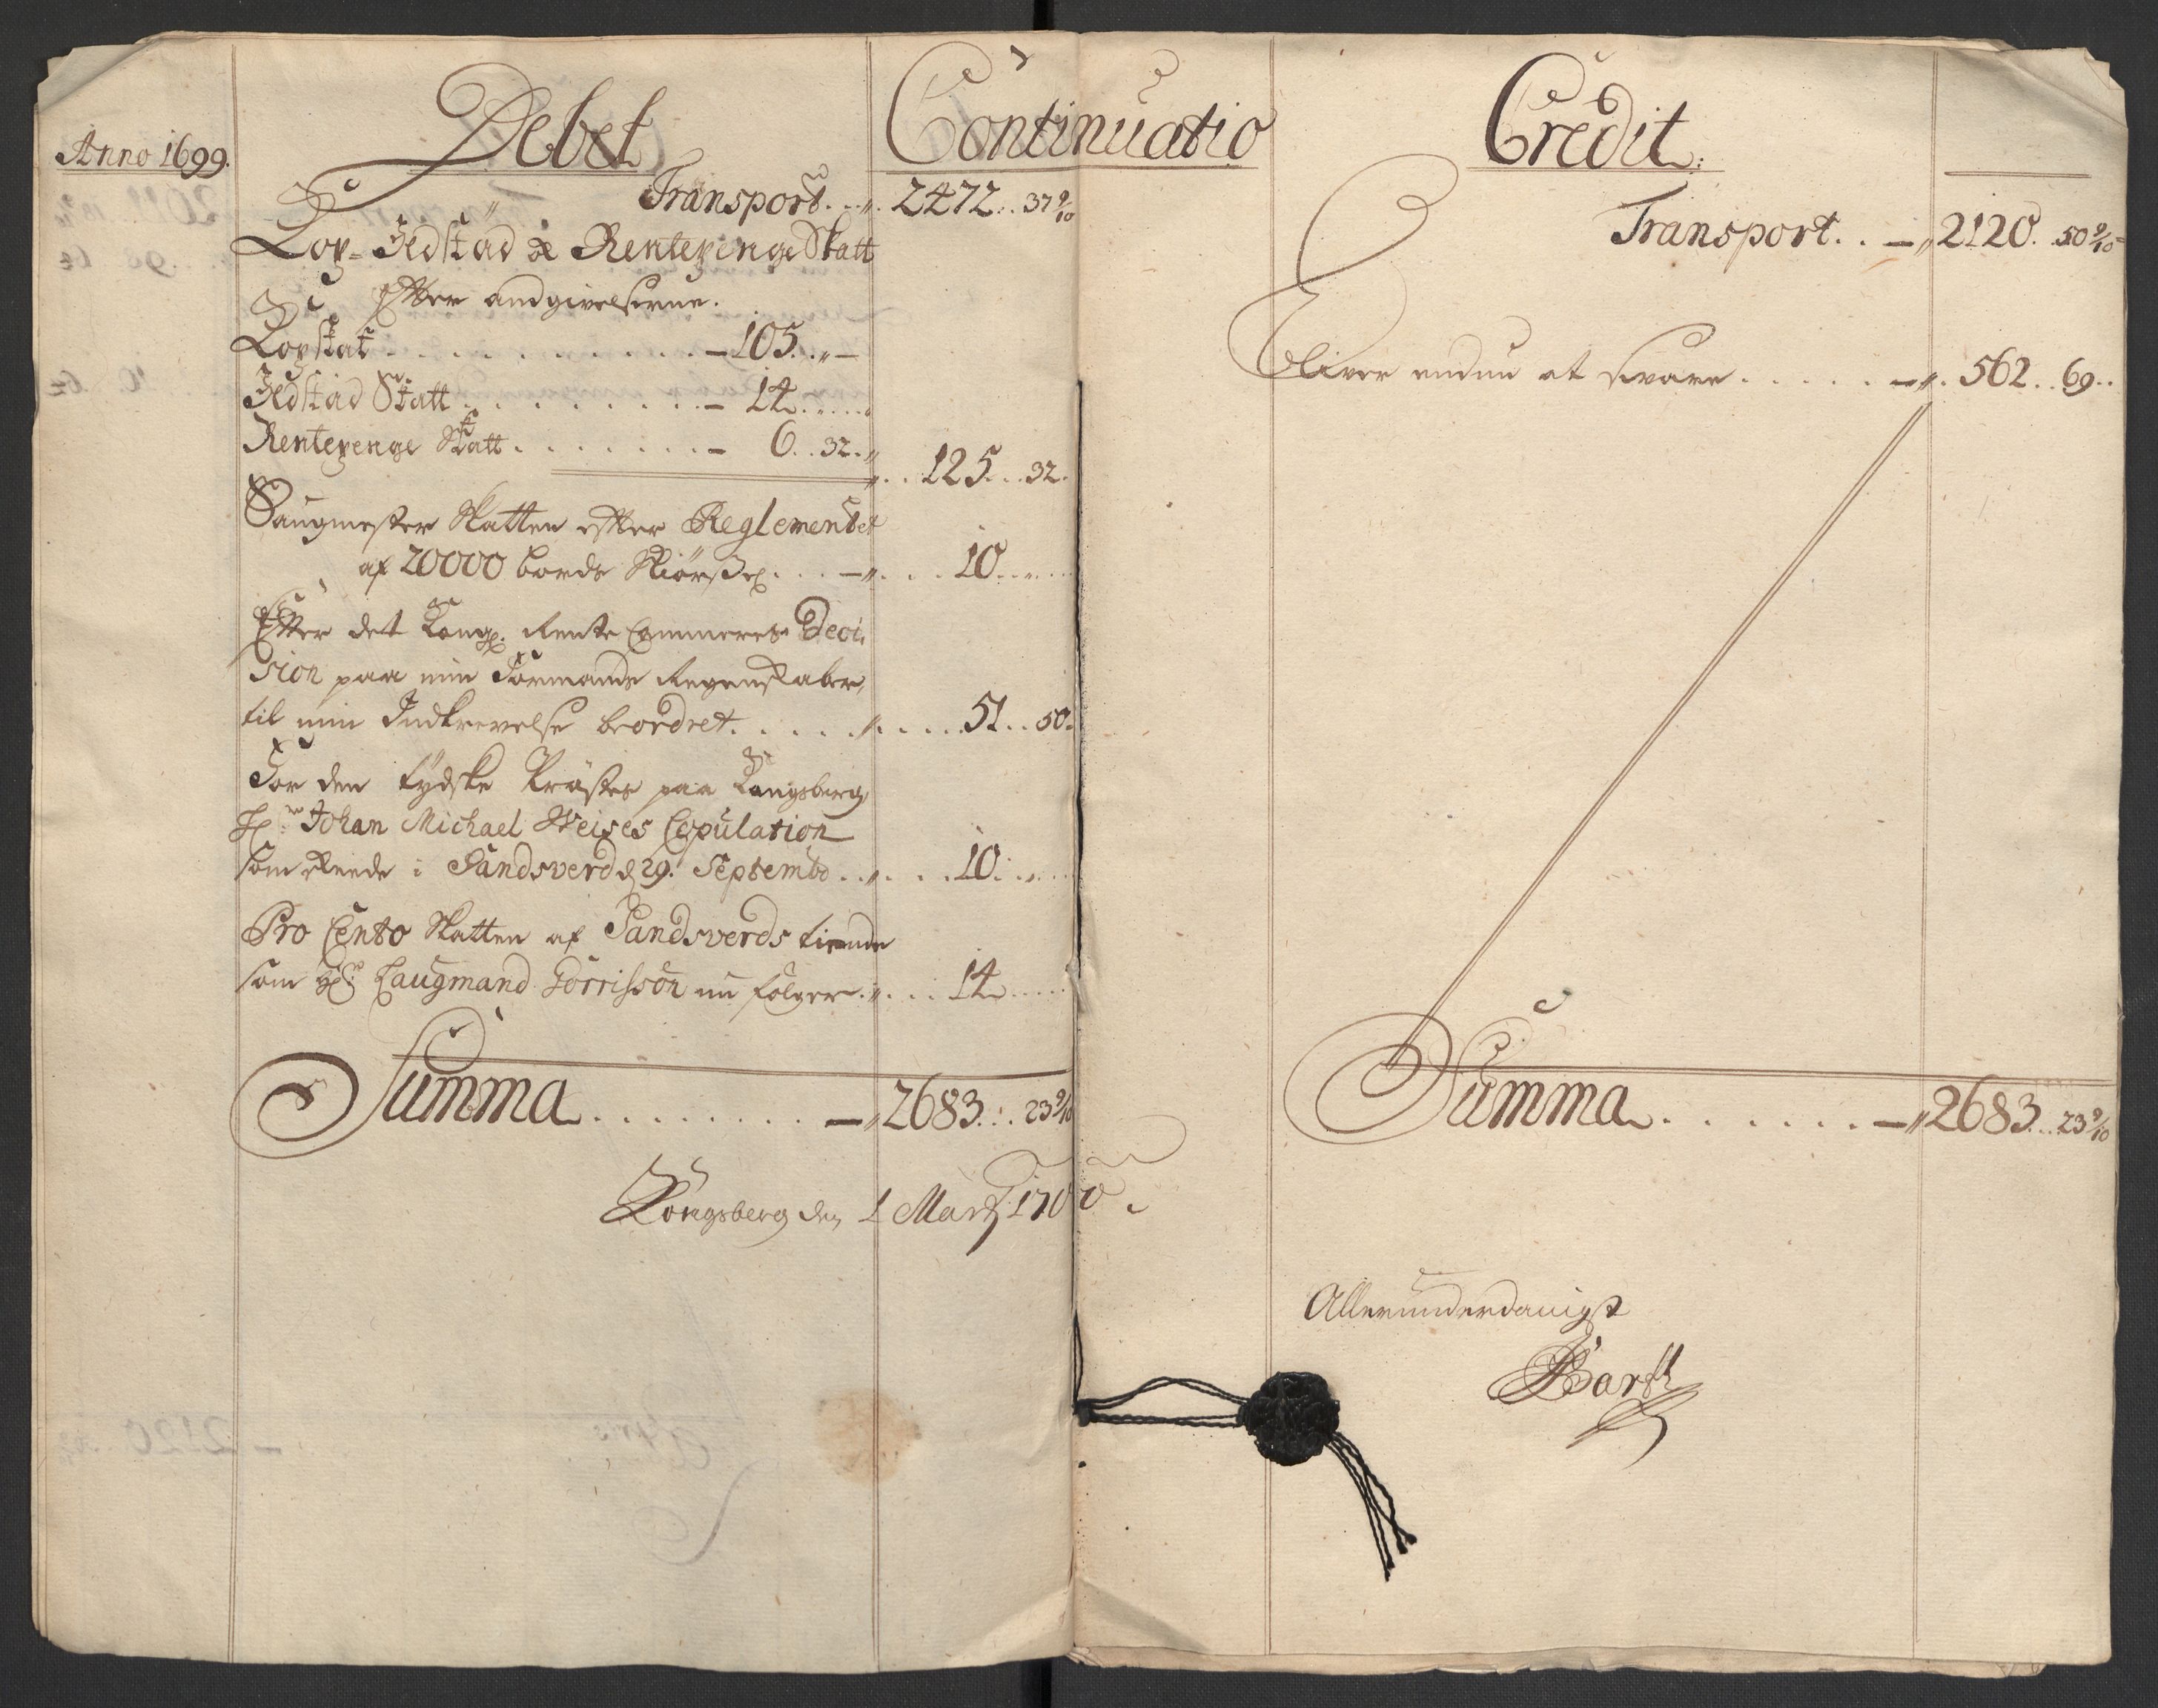 Anno 1699.
Debet
Continuatio
Transport. . . 2472. . 37 9/10
Kop= Ildstad & Rentepenge Skatt
Efter andgivelserne.
Kopskat . . . . . . . . . . . – 105. . „ –
Ildstad Skatt . . . . . . . . . – 14. . . . .
Rentepenge Skatt . . . . . . . – 6. . 32. „
. . 125. . . 32.
Saugmester Skatten efter Reglementet
af 20000 bords Skiørsel . . . – „ . . . 10. . . . .
Efter det Kongl. Rente Cammers Deci,
sion paa min Formands Regenskaber,
til min Indkrevelse beordret. . . . . „ . . . . 51. . 50.
For den tydske Præstes paa Kongsberg
Hr. Johan Michael Weises Copulation
som skeede i Sandsverd d. 29. Septembr. . „ . . . 10. . . . .
Pro Cento Skatten af Sandsverds tiende
som Hr. Laugmand Görrissön nu følger. „ . . . 14. . . . .
Summa . . . . . . . . – „ 2683. . . 23 9/10
Kongsberg den 1 Martj 1700.
Credit.
Transport. . . – „ 2120. . 50 9/10
Bliver endnu at svare . . . . . – „ . 562. . 69. .
Summa . . . . . . . – „ 2683. . . 23 9/10
Allerunderdanigst